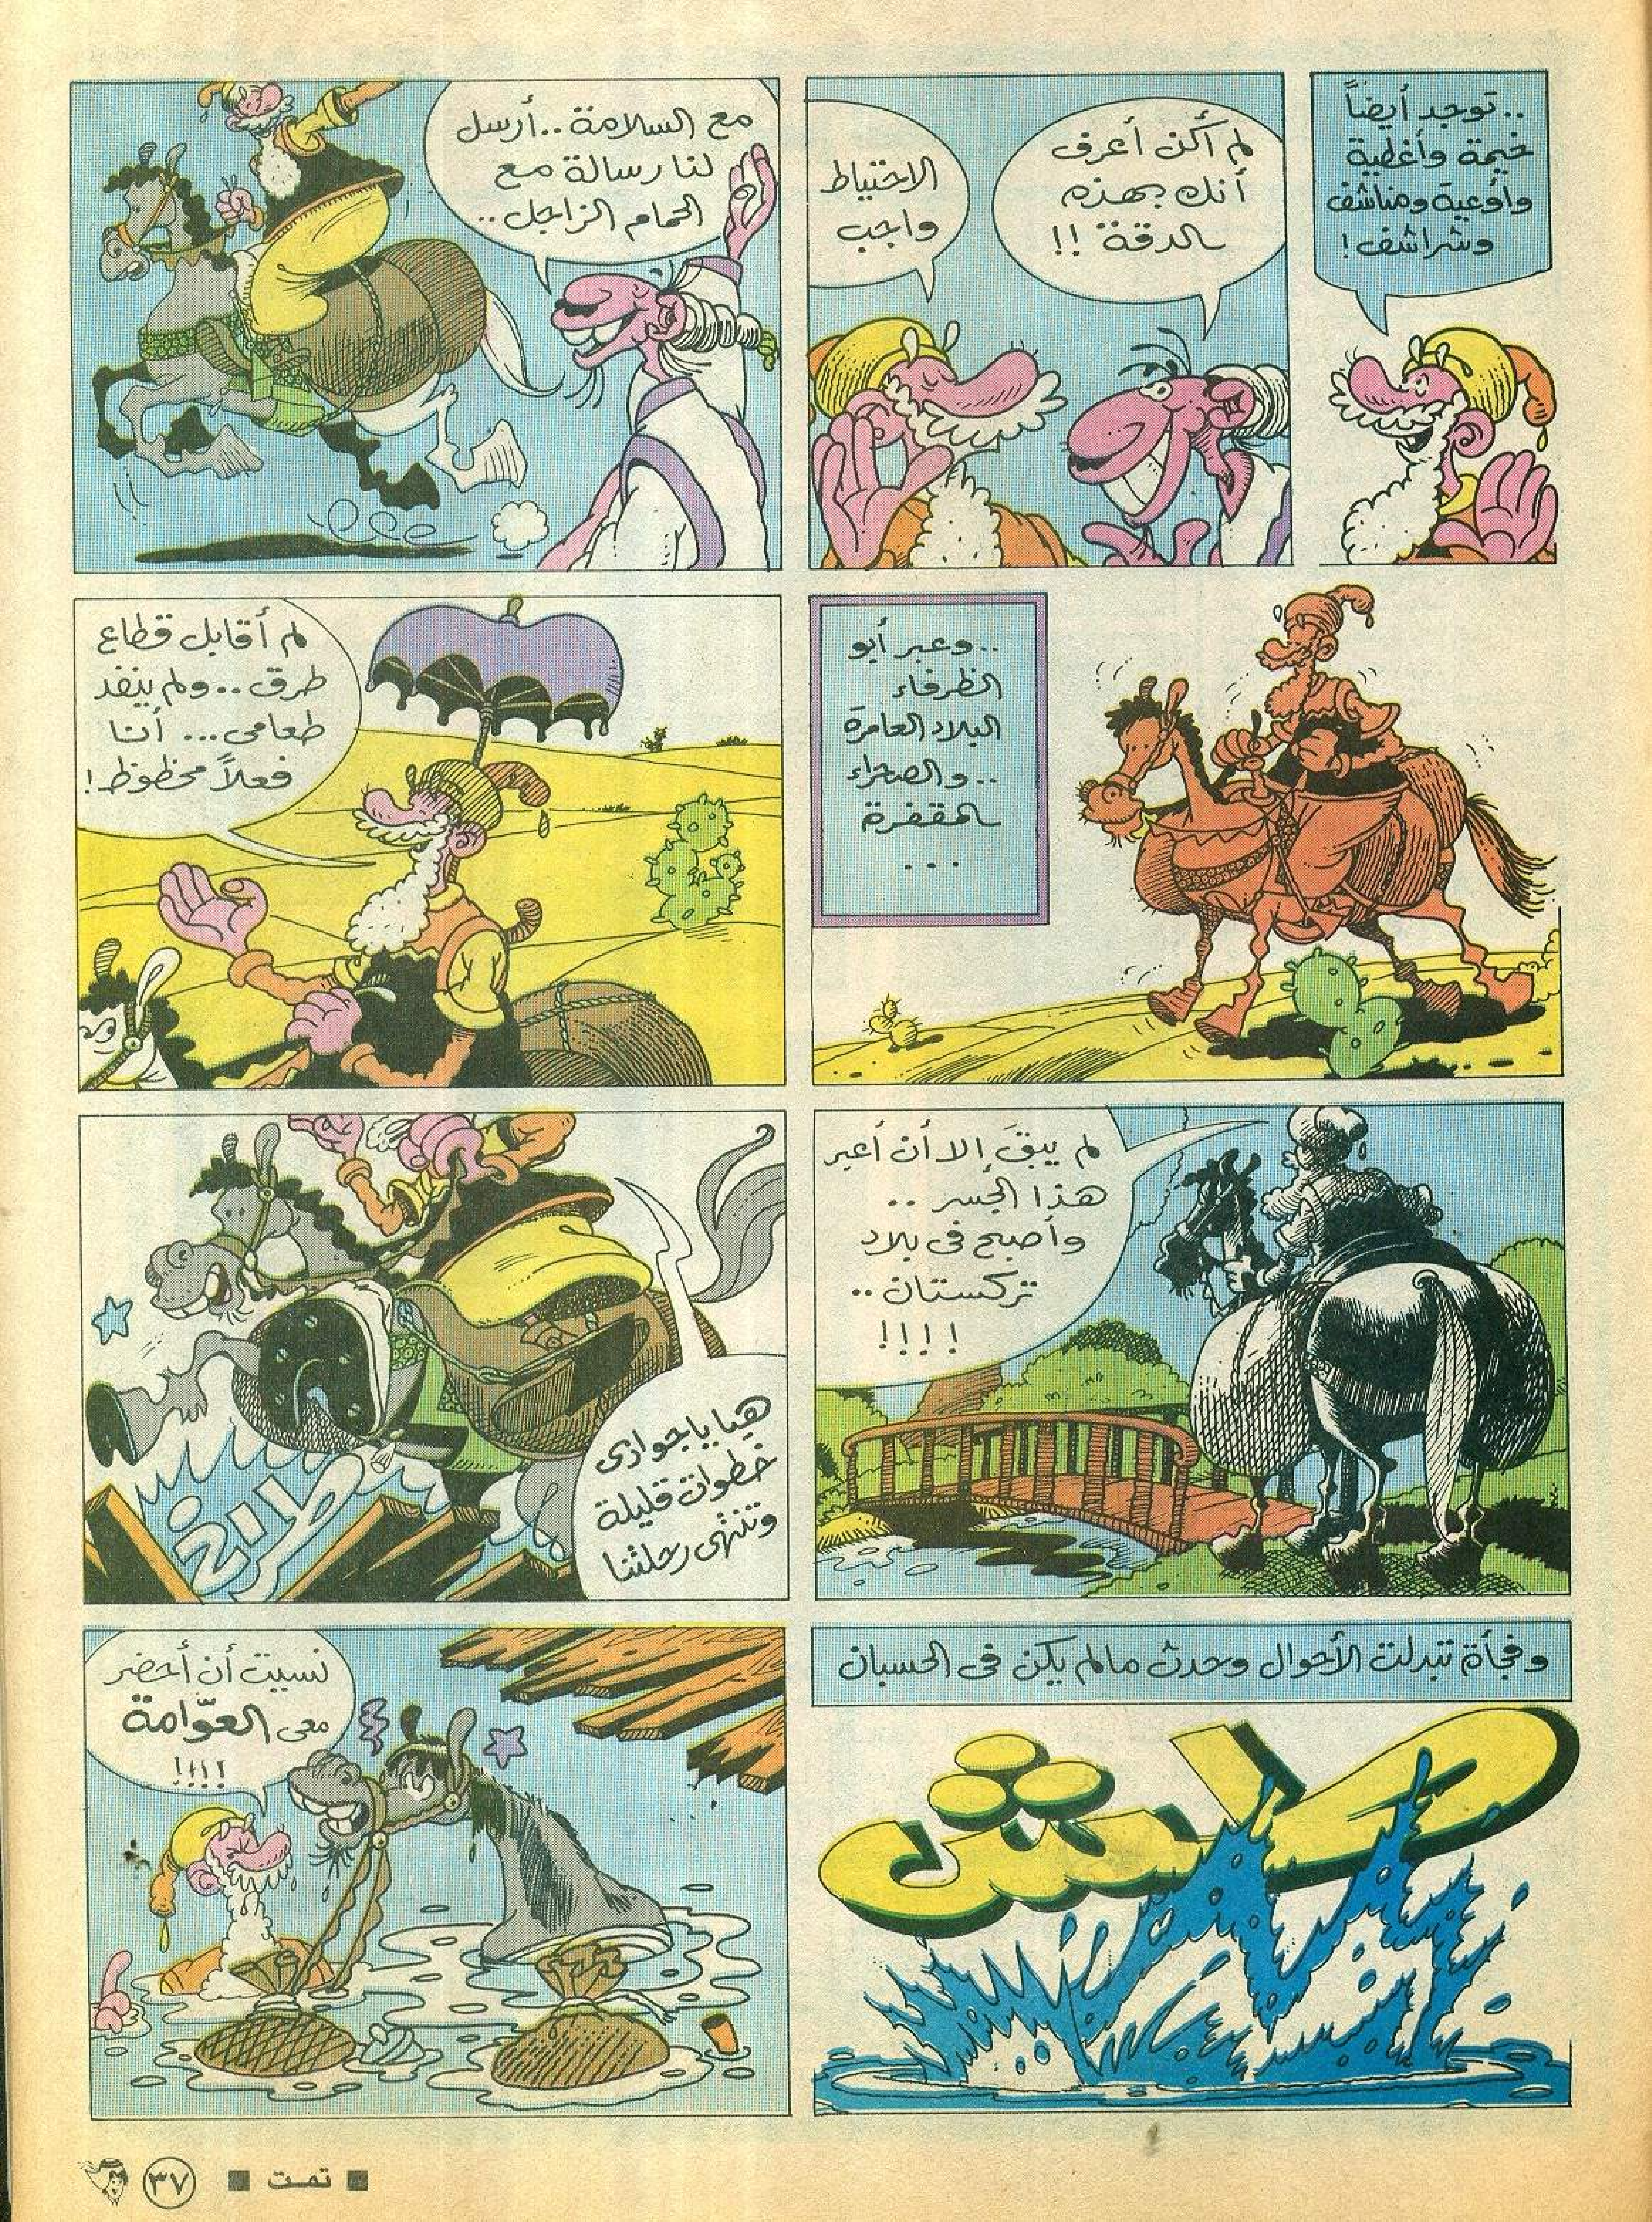 ..توجد أيضاً
خيمة وأغطية
وأوعية ومناشف
وشراشف!
لم أكن أعرف
أنك بهذه
الدقة !!
الاحتياط
واجب
مع السلامة..أرسل
لنا رسالة مع
الحمام الزاجل..
..وعبر أبو
الظرفاء
البلاد العامرة
..والصحراء
المقفرة
...
لم أقابل قطاع
طرق..ولم ينفد
طعامى... أنا
فعلاً محظوظ!
لم يبقَ إلا أن أعبر
هذا الجسر ..
وأصبح فى بلاد
تركستان ..
!!!!
هيا يا جوادى
خطوات قليلة
وتنتهى رحلتنا
طراخ
وفجأة تبدلت الأحوال وحدث مالم يكن فى الحسبان
طش
نسيت أن أحضر
معى العوّامة
!!!!
■ تمت ■ ٣٧